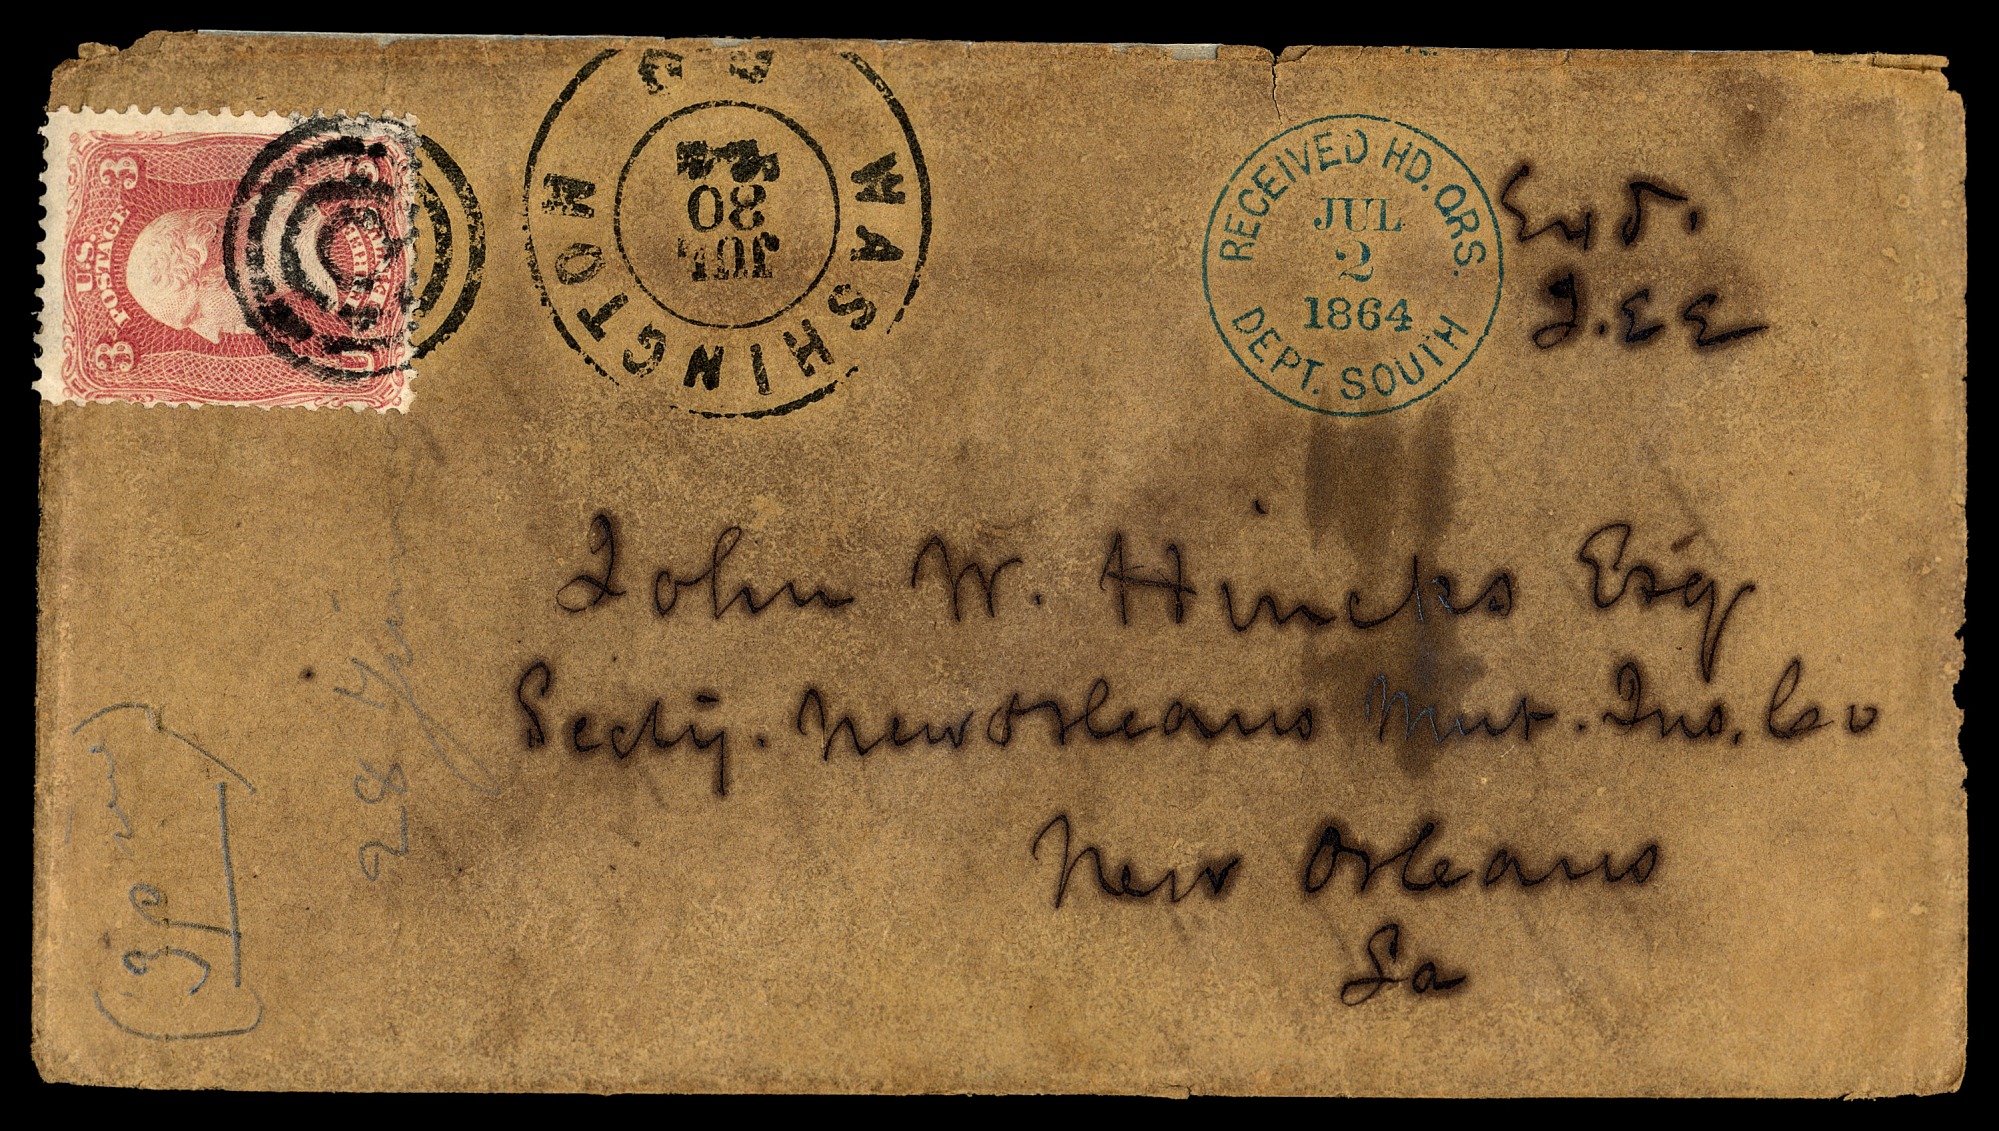 U.S. POSTAGE
3 3
WASHINGTON
D.C.
JUL
30
RECEIVED HD. QRS.
JUL
2
1864
DEPT. SOUTH
Exd.
J.E E
John W. Hincks Esq
Secty. New Orleans Mut. Ins. Co
New Orleans
La
28